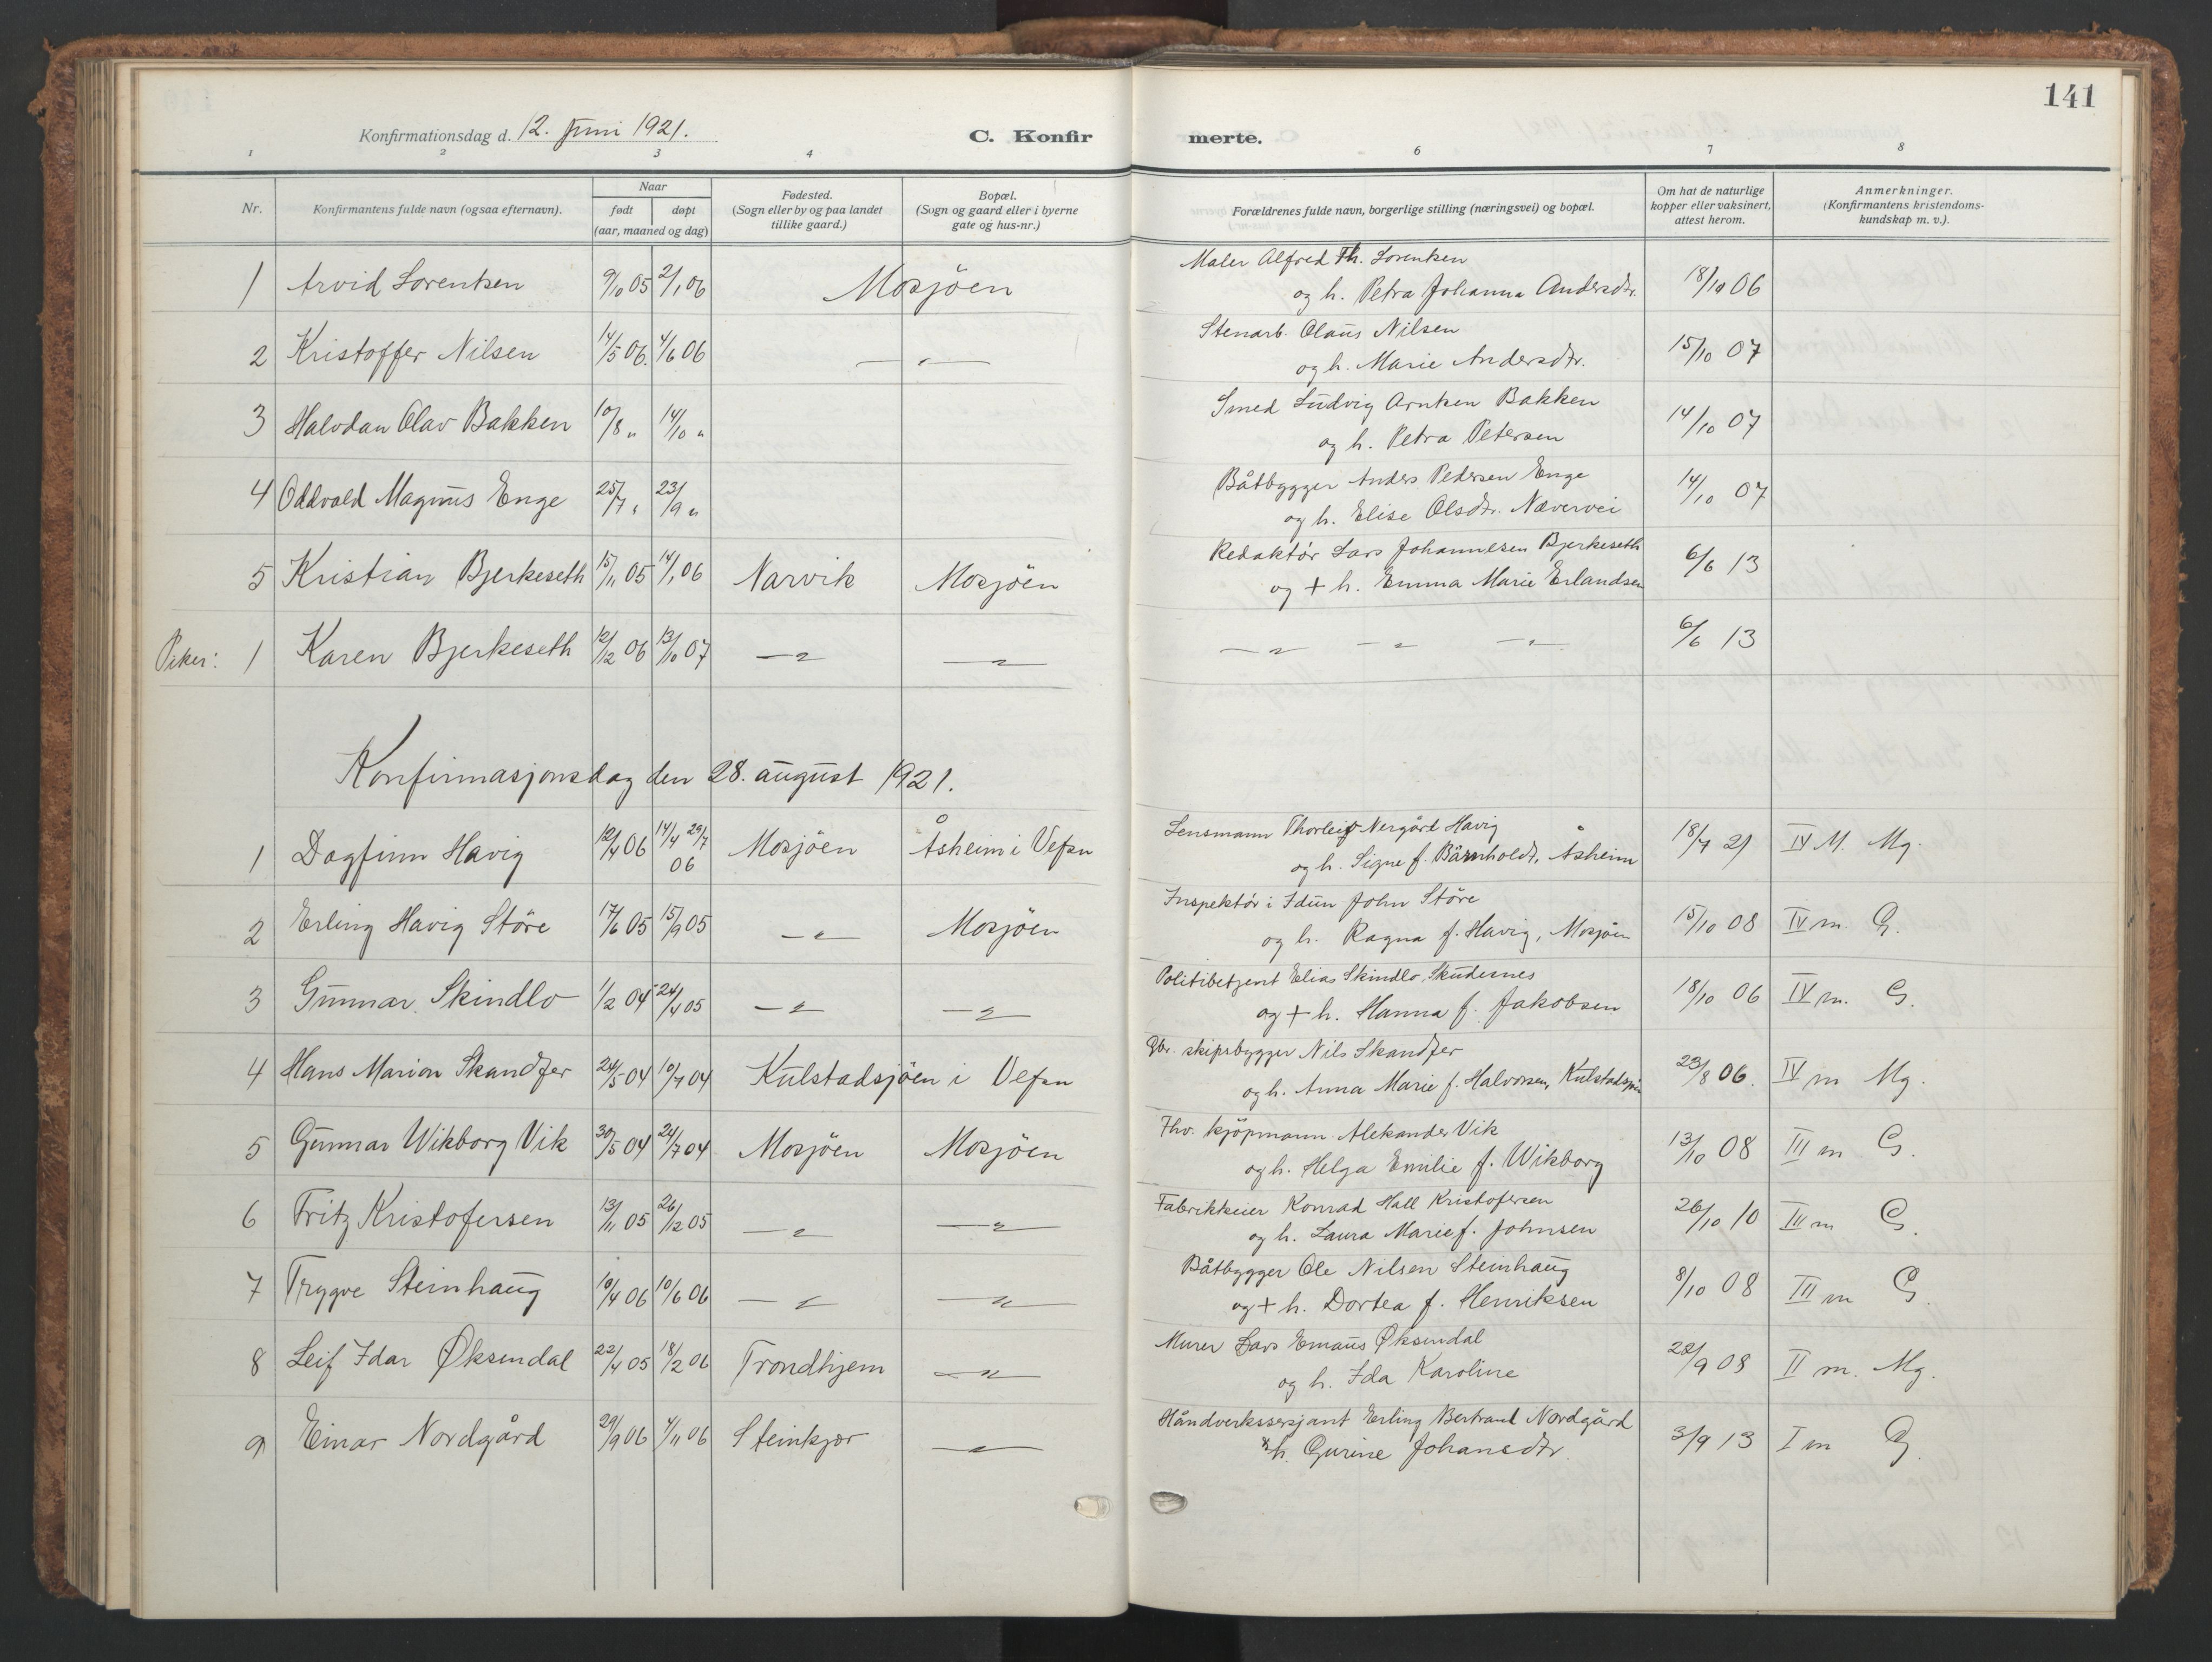 141
Konfirmationsdag d. 12. Juni 1921. C. Konfirmerte.
1 2 3 4 6 7 8
Nr. Konfirmantens fulde navn (ogsaa efternavn). Naar født døpt (aar, maaned og dag) Fødested. (Sogn eller by og paa landet tillike gaard.) Bopæl. (Sogn og gaard eller i byerne gate og hus-nr.) Forældrenes fulde navn, borgerlige stilling (næringsvei) og bopæl. Om hat de naturlige kopper eller vaksinert, attest herom. Anmerkninger. (Konfirmantens kristendomskundskap m. v.).
1 Arvid Lorentsen 9/10 05 2/1 06 Mosjöen Maler Alfred Th. Lorentsen
og h. Petra Johanna Andersdtr. 18/10 06
2 Kristoffer Nilsen 14/5 06. 4/6 06 — " — Stenarb. Olaus Nilsen
og h. Marie Andersdtr. 15/10 07
3 Halvdan Olav Bakken 10/8 " 14/10 " Smed Ludvig Arntsen Bakken
og h. Petra Petersen 14/10 07
4 Oddvald Magnus Enge 25/7 " 23/9 " Båtbygger Anders Pedersen Enge
og h. Elise Olsdtr. Nævervei 14/10 07
5 Kristian Bjerkeseth 15/11 05 14/1 06 Narvik Mosjöen Redaktör Lars Johannesen Bjerkeseth
og + h. Emma Marie Erlandsen 6/6 13
Piker: 1 Karen Bjerkeseth 12/12 06 13/10 07 — " — — " — — " — — " — — " — 6/6 13
Konfirmasjonsdag den 28. august 1921.
1 Dagfinn Havig 12/4 06 14/4 29/7 06 Mosjöen Åsheim i Vefsn Lensmann Thorleif Nergård Havig
og h. Signe f. Bårnholdt, Åsheim 18/7 21 IV M. Mg.
2 Erling Havig Störe 17/6 05 15/9 05 — " — Mosjöen Inspektör i Idun John Störe
og h. Ragna f. Havig, Mosjöen 15/10 08 IV m. G.
3 Gunnar Skindlo 1/2 04 24/4 05 — " — — " — Politibetjent Elias Skindlo, Skudesnes
og + h. Hanna f. Jakobsen 18/10 06 IV m. G.
4 Hans Marion Skandfer 24/5 04 10/7 04 Kulstadsjöen i Vefsn skipsbygger Nils Skandfer
og h. Anna Marie f. Halvorsen, Kulstadsjöen 23/8 06. IV m Mg.
5 Gunnar Wikborg Vik 30/5 04 24/7 04 Mosjöen Mosjöen Fhv. kjöpmann Aleksander Vik
og h. Helga Emilie f. Wikborg 13/10 08 III m G.
6 Fritz Kristofersen 13/11 05 26/12 05 — " — — " — Fabrikkeier Konrad Hall Kristofersen
og h. Laura Marie f. Johnsen 26/10 10 III m G.
7 Trygve Steinhaug 10/4 06 10/6 06 — " — — " — Båtbygger Ole Nilsen Steinhaug
og + h. Dortea f. Henriksen 8/10 08 III m G.
8 Leif Idar Øksendal 22/4 05 18/2 06 Trondhjem — " — Murer Lars Emaus Øksendal
og h. Ida Karoline 28/9 08 II m. Mg.
9 Einar Nordgård 29/9 06 4/11 06 Steinkjer — " — Håndverkssersjant Erling Bertrand Nordgård
h. Gurine Johansdtr. 3/9 13 I m G.